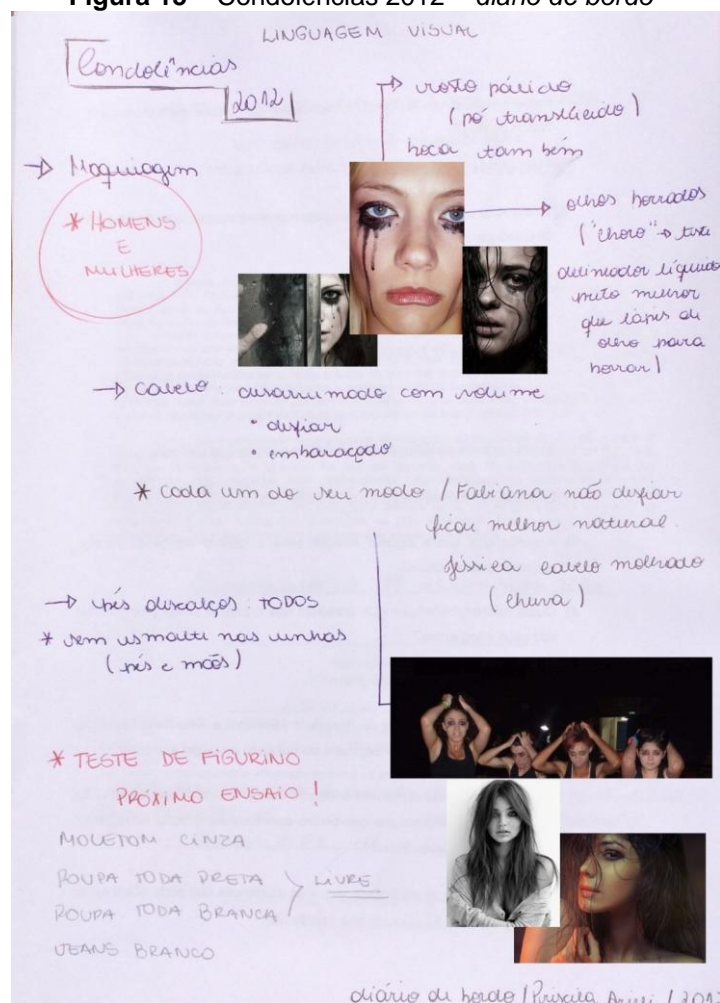 Figura 13 – Condolências 2012 – diário de bordo
LINGUAGEM VISUAL
Condolências
2012
→ rosto pálido
(pó translúcido)
boca também
→ Maquiagem
* HOMENS
E
MULHERES
→ olhos borrados
("choro" →
delineador líquido
preto melhor
que lápis de
olho para
borrar)
→ Cabelo: desarrumado com volume
• desfiar
• embaraçado
* cada um do seu modo / Fabiana não desfiar
ficou melhor natural.
Jéssica cabelo molhado
(chuva)
→ pés descalços: TODOS
* sem esmalte nas unhas
(pés e mãos)
* TESTE DE FIGURINO
PRÓXIMO ENSAIO!
MOLETOM CINZA
ROUPA TODA PRETA
LIVRE
ROUPA TODA BRANCA
JEANS BRANCO
diário de bordo / Priscila